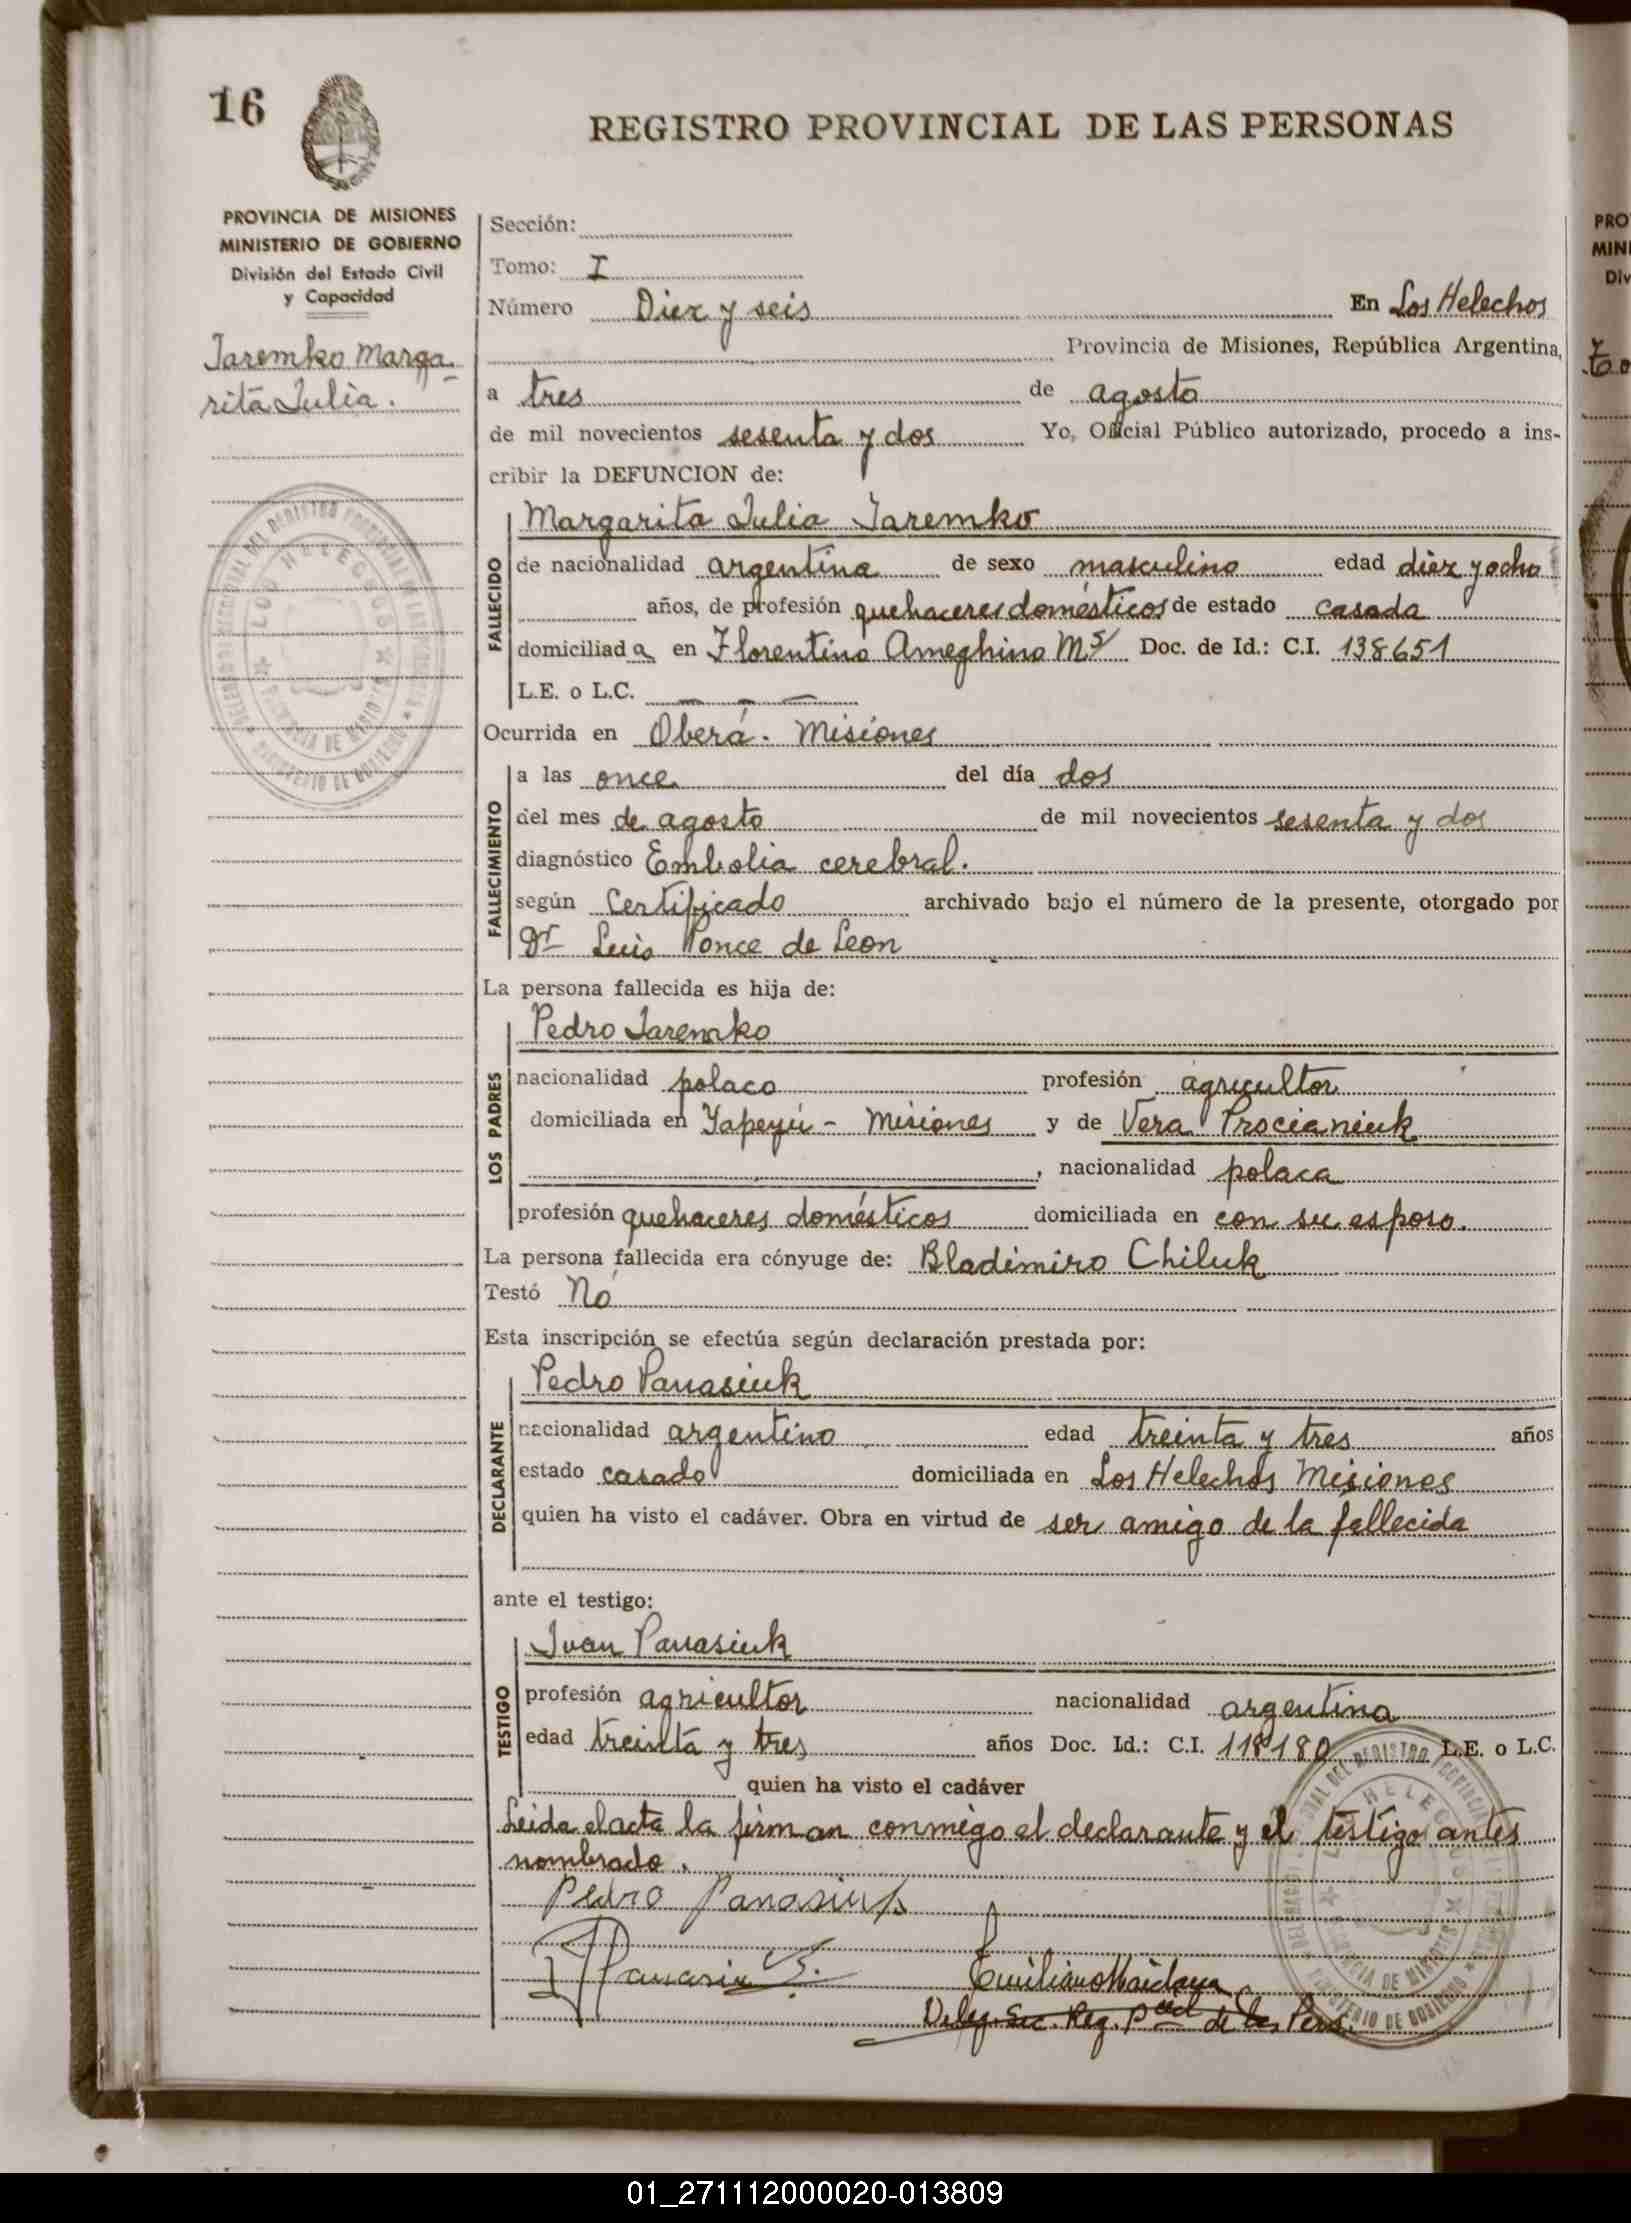 16
REGISTRO PROVINCIAL DE LAS PERSONAS
PROVINCIA DE MISIONES
MINISTERIO DE GOBIERNO
División del Estado Civil
y Capacidad
Jaremko Marga-
rita Julia.
Sección:
Tomo: I
Número Diez y seis En Los Helechos
Provincia de Misiones, República Argentina,
a tres de agosto
de mil novecientos sesenta y dos Yo, Oficial Público autorizado, procedo a ins-
cribir la DEFUNCION de:
Margarita Julia Jaremko
FALLECIDO
de nacionalidad argentina de sexo masculino edad diez y ocho
años, de profesión quehaceres domésticos de estado casada
domiciliada en Florentino Ameghino Ms Doc. de Id.: C.I. 138651
L.E. o L.C. — — —
Ocurrida en Oberá. Misiones
FALLECIMIENTO
a las once del día dos
del mes de agosto de mil novecientos sesenta y dos
diagnóstico Embolia cerebral.
según Certificado archivado bajo el número de la presente, otorgado por
Dr Luis Ponce de Leon
La persona fallecida es hija de:
Pedro Jaremko
LOS PADRES
nacionalidad polaco profesión agricultor
domiciliada en Yapeyú - Misiones y de Vera Procianiuk
, nacionalidad polaca
profesión quehaceres domésticos domiciliada en con su esposo.
La persona fallecida era cónyuge de: Bladimiro Chiluk
Testó No
Esta inscripción se efectúa según declaración prestada por:
Pedro Panasiuk
DECLARANTE
nacionalidad argentino edad treinta y tres años
estado casado domiciliada en Los Helechos Misiones
quien ha visto el cadáver. Obra en virtud de ser amigo de la fallecida
ante el testigo:
Juan Panasiuk
TESTIGO
profesión agricultor nacionalidad argentina
edad treinta y tres años Doc. Id.: C.I. 118180 L.E. o L.C.
quien ha visto el cadáver
Leida el acta la firman conmigo el declarante y el testigo antes
nombrado.
Pedro Panasiuk
Emiliano Maidana
Deleg. Sec. Reg. Pcial de las Pers.
LOS HELECHOS
01_271112000020-013809